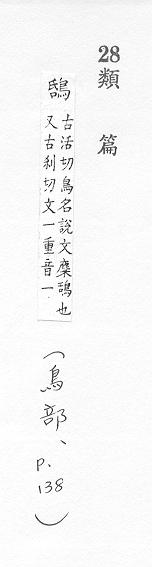 28
類篇
鴰 古活切鳥名說文麋鴰也
又古刹切文一重音一
（鳥部、P.138）